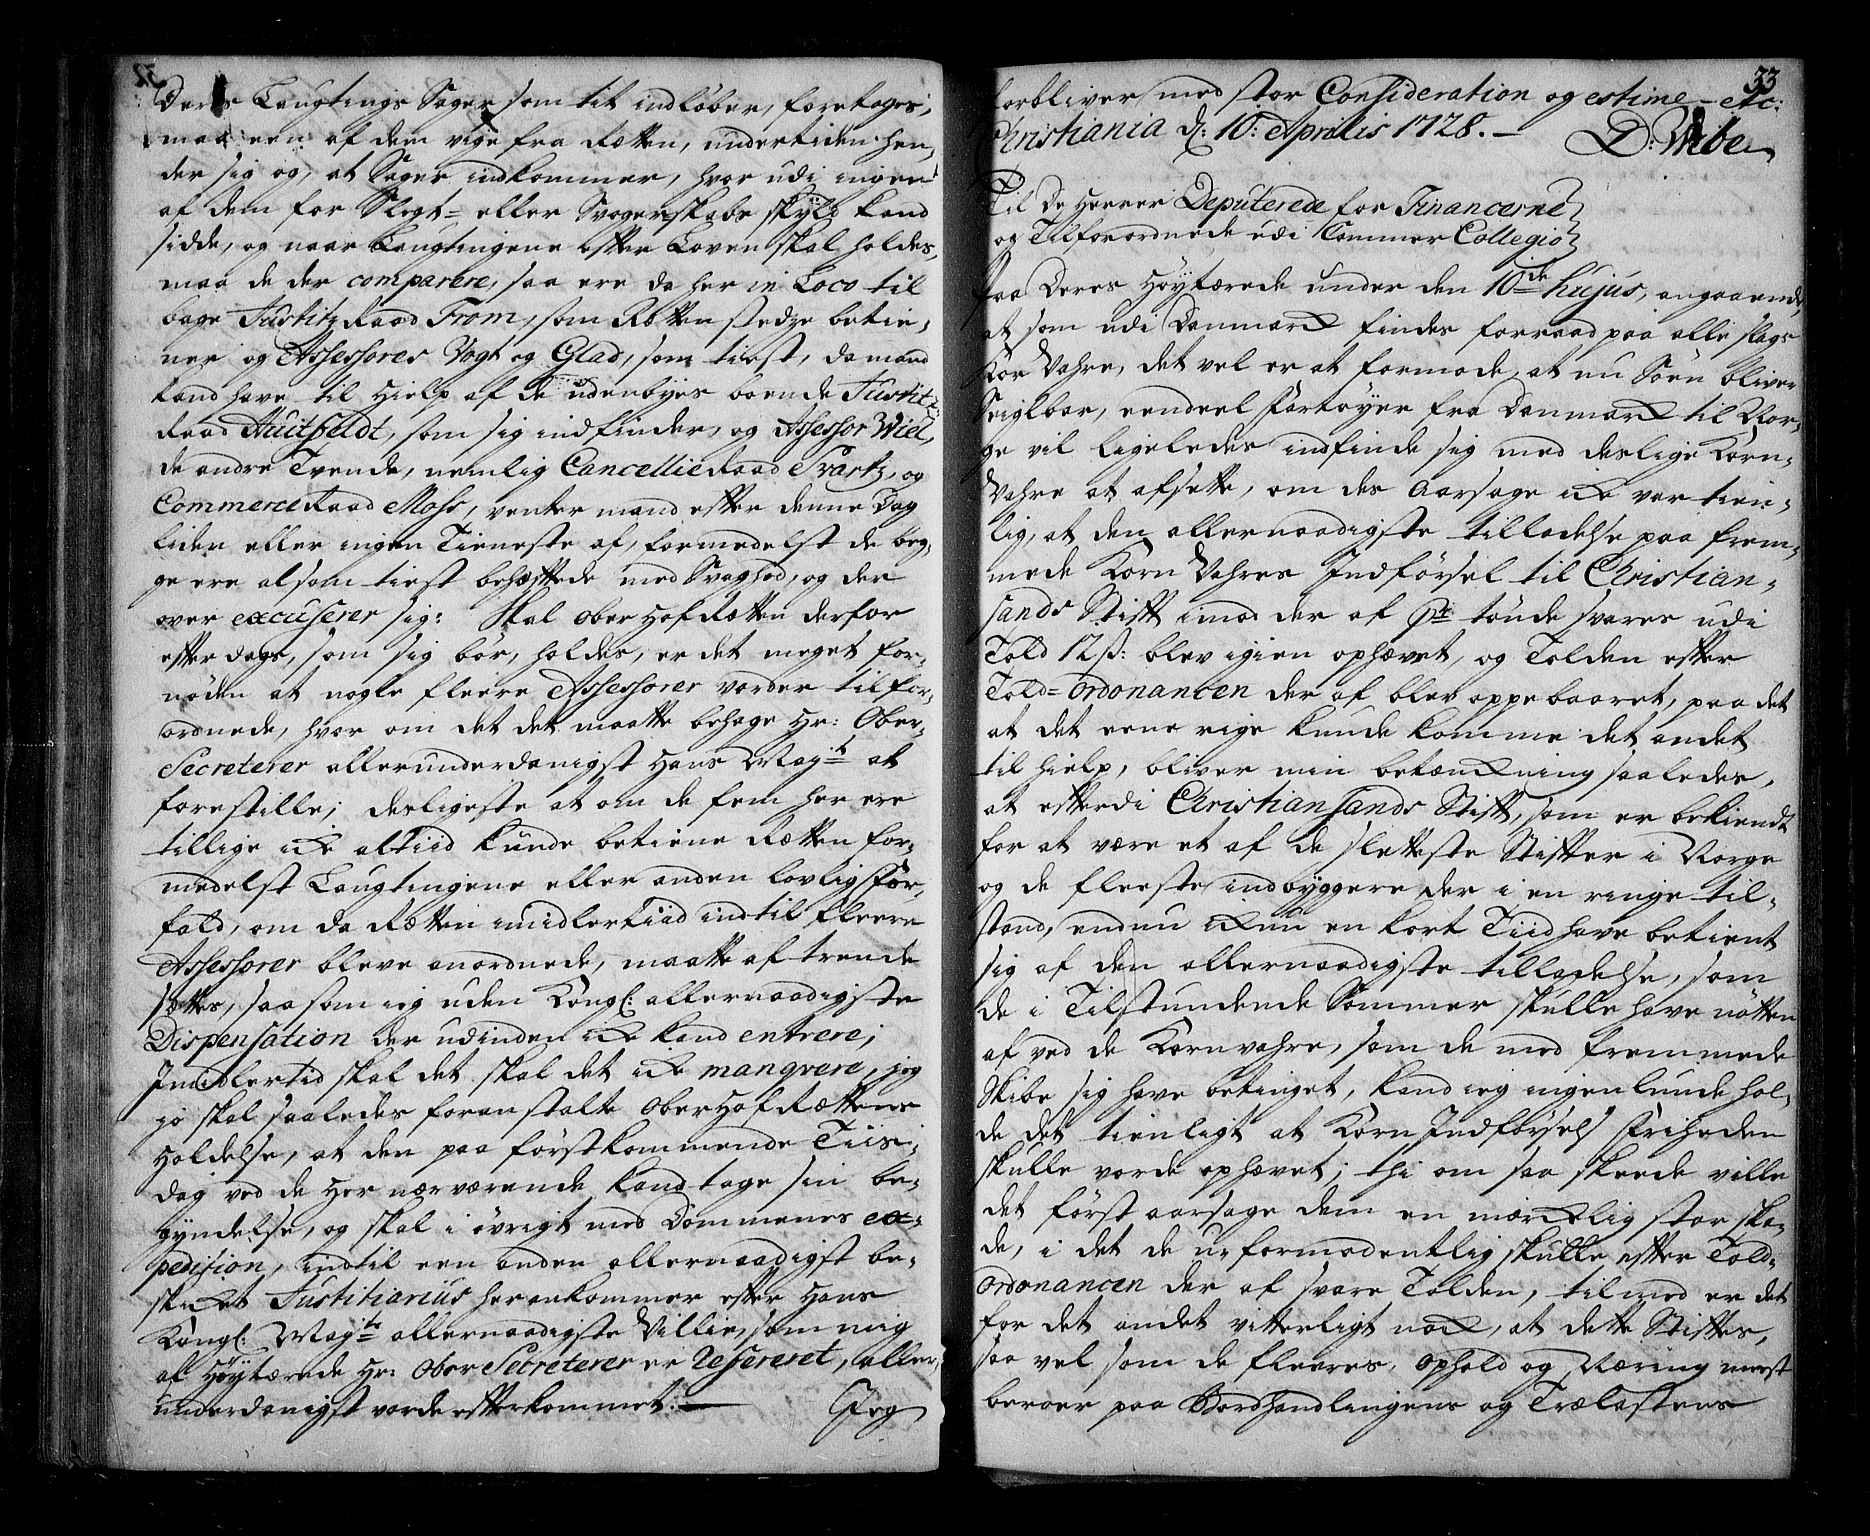 Deres Laugtings Sager som tit indløber, foretages,
maa een af dem vige fra Rætten, undertiden hen,
der sig og, at Sager indkommer, hvor udi ingen
af dem for Slegt- eller Svogerskabs skyld kand
sidde, og naar Laugtingene efter Loven skal holdes,
maa de der comparere, saa ere da her in Loco til
bage Justitz Raad From, som Rætten stedze betie,
ner og Assessores Vogt og Glad, som tiest, da mand
kand have til Hielp af de udenbyes boende Justitz
Raad Huitfeldt, som sig indfinder, og Assessor Wiel,
de andre Tvende, nemlig Cancellie Raad Svartz, og
Commerce Raad Mohr, venter mand efter denne Dag
liden eller ingen Tieneste af, formedelst de beg,
ge ere alsom tiest behæftede med Svaghed, og der
over excuserer sig: Skal Ober Hof Rætten derfor
efter dags, som sig bør, holdes, er det meget for,
nøden at nogle fleere Assessorer vorder tilfor,
ordnede, hvor om det det maatte behage Hr: Ober,
Secreterer allerunderdanigst Hans Mayts at
forestille; desligeste at om de fem her ere
tillige icke altiid kunde betiene Rætten for,
medelst Laugtingene eller anden lovlig For,
fald, om da Rætten imidlertiid indtil fleere
Assessorer bleve anordnede, maatte af trende
sættes, saa som ieg uden Kongl: allernaadigste
Dispensation der udinden icke kand entrere;
Imidlertid skal det skal det icke manqvere, jeg
jo skal saaledes foranstalte Ober Hof Rættens
Holdelse, at den paa førstkommende Tiis,
dag ved de Her nærværende kand tage sin be,
gyndelse, og skal i øvrigt med Dommenes ex,
pedition, indtil een anden allernaadigst be,
skicket Justitiarius her ankommer efter Hans
Kongl: Mayts allernaadigste Villie, som mig
af Høytærede Hr: Ober Secreterer er Refereret, aller,
underdanigst vorde efterkommet.
Jeg
33
forbliver med stor Consideration og estime - etc:
Christiania d: 10: Aprilis 1728.
D: Wibe
Til De Herrer Deputerede for Financerne
og Tilforordnede udi Commer Collegio
Paa Deres Høytærede under den 10de hujus, angaaende,
at som udi Danmark findes forraad paa alle slags
Kor Vahre, det vel er at formode, at nu Søen bliver
Seiglbar, eendeel Fartøyer fra Danmark til Nor,
ge vil ligeledes indfinde sig med deslige Korn,
Vahre at afsette, om des Aarsage icke var tien,
lig, at den allernaadigste tilladelse paa frem,
mede Korn Vahres Indførsel til Christian,
sands Stift imod der af pr tønde svares udi
Told 12 ß: blev igien ophævet, og Tolden efter
Told-ordonancen der af blev oppebaaret, paa det
at det eene rige kunde komme det andet
til hielp, bliver min betænckning saaledes,
at efterdi Christiansands Stift, som er bekiendt
for at være et af de sletteste Stifter i Norge
og de fleeste indbyggere der i en ringe til,
stand, endnu ickun en kort Tiid have betient
sig af den allernaadigste tilladelse, som
de i Tilstundende Sommer skulle have nøtten
af ved de Kornvahre, som de med fremmede
Skibe sig have betinget, kand ieg ingenlunde hol,
de det tienligt at Korn Indførsels Friheden
skulle vorde ophævet; thi om saa skeede ville
det først aarsage dem en mærckelig stor ska,
de, i det de uformodentlig skulle efter Told-
ordonancen der af svare Tolden, tilmed er det
for det andet vitterligt nock, at dette Stiftes,
saa vel som de fleeres, Ophold og Næring meest
beroer paa Bordhandlingens og Trælastens